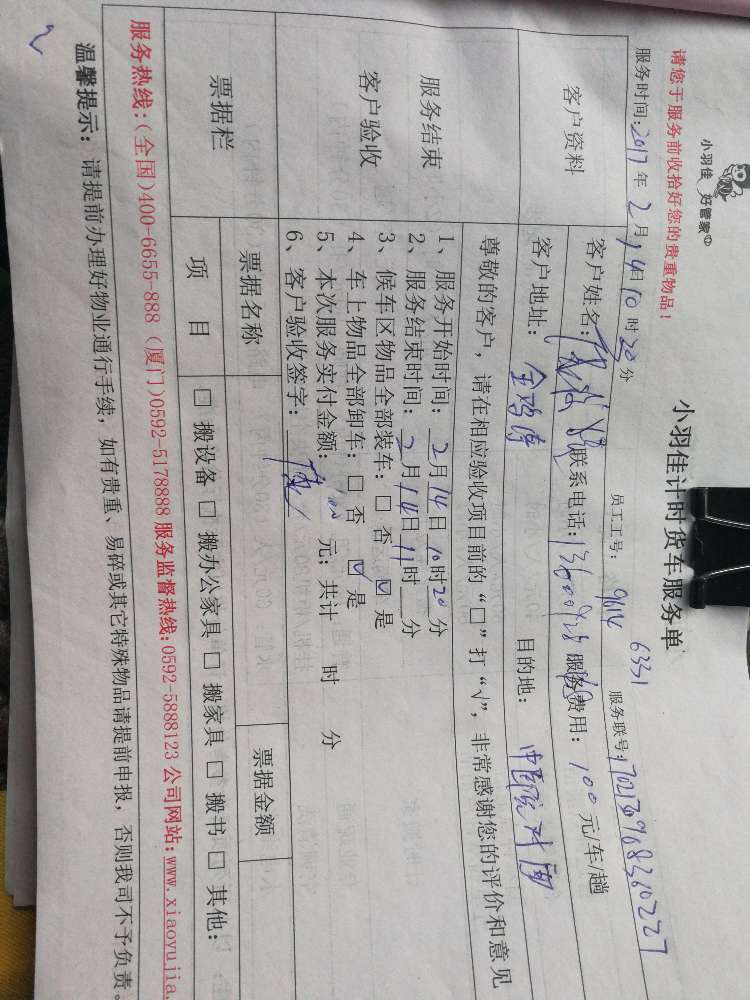 小羽佳 好管家
小羽佳计时货车服务单
请您于服务前收拾好您的贵重物品！
员工工号： 9614 6331 服务联号：
服务时间：2017年2月14日10时20分
客户资料
客户姓名： 联系电话： 服务费用：100元/车/趟
客户地址：金鸡亭 目的地：
尊敬的客户，请在相应验收项目前的“□”打“√”，非常感谢您的评价和意见
服务结束
客户验收
1、服务开始时间：2月14日10时20分
2、服务结束时间：2月14日11时 分
3、候车区物品全部装车：□ 否 ☑ 是
4、车上物品全部卸车：□ 否 ☑ 是
5、本次服务实付金额：100元；共计 时 分
6、客户验收签字：
票据栏
票据名称 票据金额
项 目 □ 搬设备 □ 搬办公家具 □ 搬家具 □ 搬书 □ 其他：
服务热线：(全国)400-6655-888 (厦门)0592-5178888 服务监督热线：0592-5888123 公司网站：www.xiaoyujia.
温馨提示：请提前办理好物业通行手续，如有贵重、易碎或其它特殊物品请提前申报，否则我司不予负责。